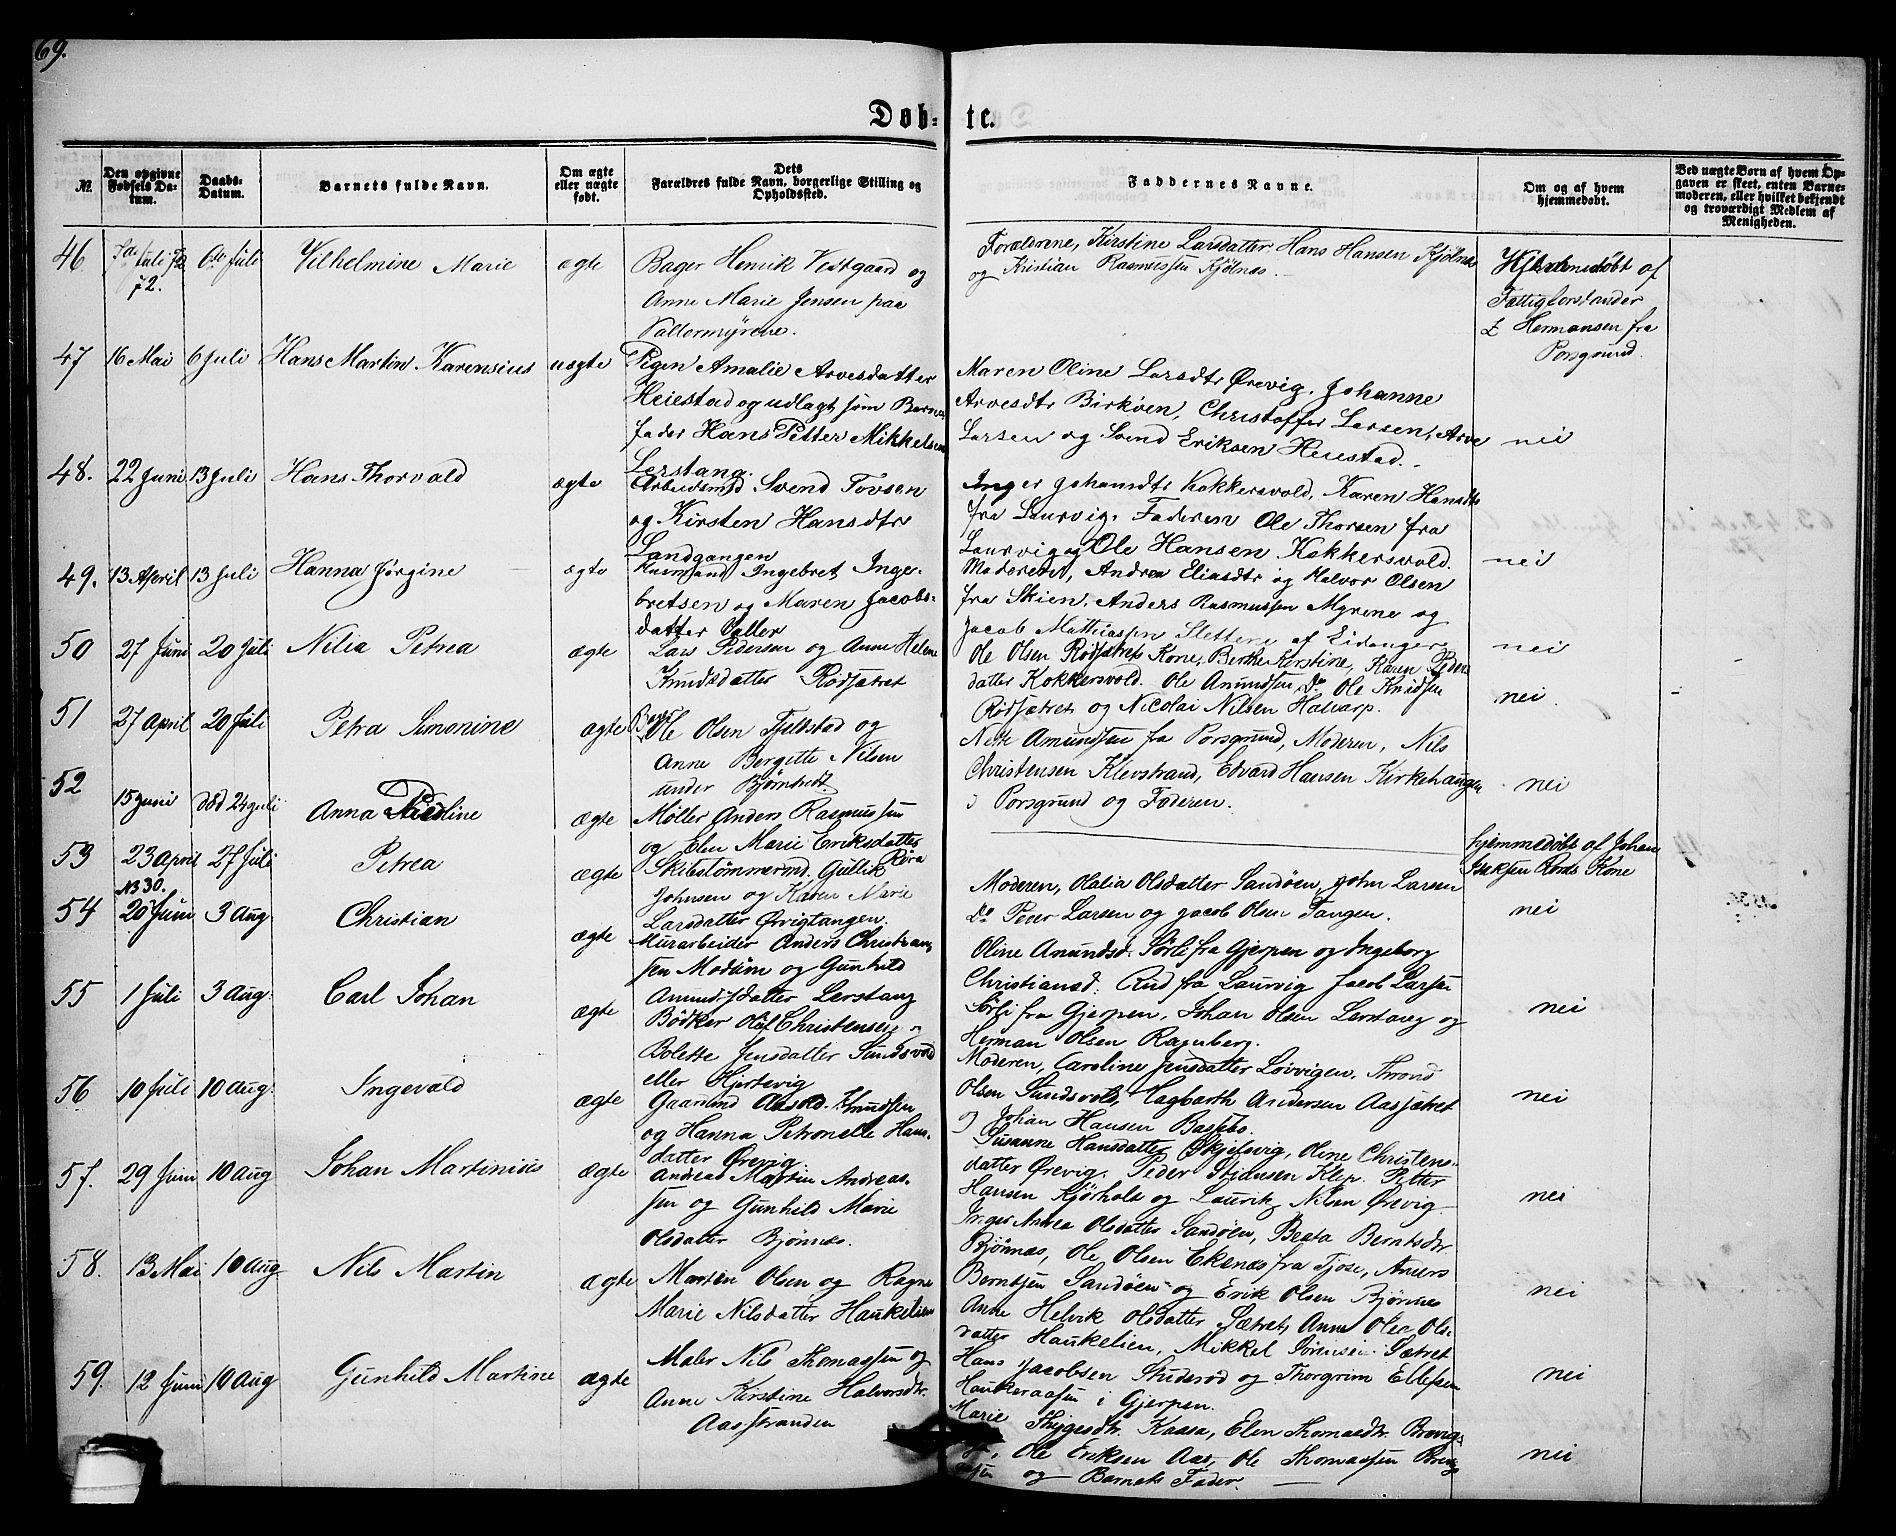 69.
Døb-te.
No.
Den opgivne Fødsels Da-tum.
Daabs-Datum.
Barnets fulde Navn.
Om ægte eller uægte født.
Dets Forældres fulde Navn, borgerlige Stilling og Opholdssted.
Faddernes Navne.
Om og af hvem hjemmedøbt.
Ved uægte Børn af hvem Op-gaven er skeet, enten Barne-moderen, eller hvilket bekjendt og troværdigt Medlem af Menigheden.
46
Juli
72.
Juli
Vilhelmine Marie
ægte
Bager Henrik Vestgaard og
Anne Marie Jensen paa
Vallermyrene.
Forældrene, Kirstine Larsdatter, Hans Hansen Kjølnæs
og Kristian Rasmussen Kjølnæs.
Hjemmedøbt af
Fattigforstander
Hermansen fra
Porsgrund.
47
16 Mai
6 Juli
Hans Martin Karensius
uægte
Pigen Amalie Arvesdatter
Heiestad og udlagt som Barne
fader Hans Petter Mikkelsen
Lerstang.
Maren Oline Larsdtr Ørevig, Johanne
Arvesdtr Birkøen, Christoffer Larsen, Arve
Larsen og Svend Eriksen Heiestad.
nei
48.
22 Juni
13 Juli
Hans Thorvald
ægte
Arbeidsmd Svend Tovsen
og Kirsten Hansdtr
Landgangen
Inger Johansdtr Kokkersvold, Karen Hansdtr
fra Laurvig, Faderen Ole Thorsen fra
Laurvig og Ole Hansen Kokkersvold.
nei
49.
13 April
13 Juli
Hanna Jørgine
ægte
Husmand Ingebret Inge-
bretsen og Maren Jacobs-
datter Valler
Moderen, Andrea Eliasdtr og Halvor Olsen
fra Skien, Anders Rasmussen Myrene og
Jacob Mathiassen Slettene af Eidanger
nei
50
27 Juni
20 Juli
Nilia Petrea
ægte
Lars Pedersen og Anne Helene
Knudsdatter Rødsætret
Ole Olsen Rødsætrets Kone, Berthe Kirstine, Karen Peders
datter Kokkersvold. Ole Amundsen, Do Ole Knudsen
Rødsætret og Nicolai Nilsen Halvarp.
nei.
51
27 April
20 Juli
Petra Simonine
ægte
Ole Olsen Fjeldstad og
Anne Bergitte Nilsen
under Bjørntvedt
Amundsen fra Porsgrund, Moderen, Nils
Christensen Klevstrand, Edvard Hansen Kirkehaugen
i Porsgrund og Faderen.
nei
52
15 Juni
død 24 Juli
Anna Pauline
ægte
Møller Anders Rasmussen
og Elen Marie Eriksdatter
Røra
hjemmedøbt af Johan
Isaksen Røras Kone
53
23 April
No 30.
27 Juli
Petrea
ægte
Skibstømmermd. Gullik
Johnsen og Karen Marie
Larsdatter Ørvigtangen.
Moderen, Olalia Olsdatter Sandøen, John Larsen
Do Peder Larsen og Jacob Olsen Tangen.
nei
54
20 Juni
3 Aug
Christian
ægte
Murarbeider Anders Christian-
sen Modum og Gunhild
Amundsdatter Lerstang
Oline Amundsd: Sørli fra Gjerpen og Ingeborg
Christiansd: Rud fra Laurvig Jacob Larsen
Sørli fra Gjerpen, Johan Olsen Lerstang og
Herman Olsen Ragnberg.
nei
55
1 Juli
3 Aug.
Carl Johan
ægte
Bødker Olaf Christensen og
Bolette Jensdatter Sundsvold
eller Hjertevig
Moderen, Caroline Jensdatter Løvvigen, Thrond
Olsen Sundsvold, Hagbarth Andersen Aassætret
og Johan Hansen Bassebo.
nei
56
10 Juli
10 Aug.
Ingevald
ægte
Gaarmd Aasold Knudsen
og Hanna Petronelle Hans-
datter Ørevig
Susanne Hansdatter Skjelsvig, Oline Christens-
datter Ørevig, Peder Stiansen Klep, Petter
Hansen Kjørholt og Laurik Nilsen Ørevig
nei
57.
29 Juni
10 Aug
Johan Martinius
ægte
Andreas Martin Andreas-
sen og Gunhild Marie
Olsdatter Bjønnæs.
Inger Andrea Olsdatter Sandøen, Beata Berntsdtr.
Bjønnæs, Ole Olsen Ekenæs fra Tjose, Anders
Berntsen Sandøen og Erik Olsen Bjønnes
nei
58.
13 Mai
10 Aug
Nils Martin
ægte
Martin Olsen og Ragne
Marie Nilsdatter Haukelien
Anne Helvik Olsdatter Sætret, Anne Olea Ols-
datter Haukelien, Mikkel Sørensen Sætret
Hans Jacobsen Studerød og Thorgrim Ellefsen
Haukeraasen i Gjerpen.
nei
59.
12 Juni
10 Aug
Gunhild Martine
ægte
Maler Nils Thomassen og
Anne Kirstine Halvorsdtr.
Aasstranden
Marie Thygesdtr. Kaasa, Elen Thomasdtr.
Ole Eriksen Aas, Ole Thomassen
og Barnets Fader.
nei